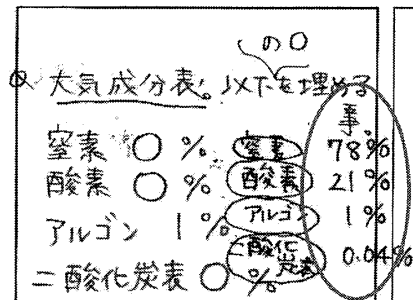 の○
Q 大気成分表。以下を埋める
事。
窒素 ○ % 窒素 78%
酸素 ○ % 酸素 21%
アルゴン 1% アルゴン 1%
二酸化炭表 ○ % 二酸化炭素 0.04%